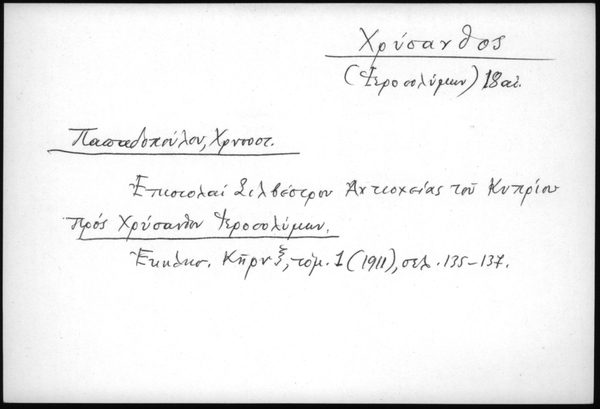 Χρύσανθος
(Ἱεροσολύμων) 18 αἰ.
Παπαδοπούλου, Χρυσοστ.
Ἐπιστολαί Σιλβέστρου Ἀντιοχείας τοῦ Κυπρίου
πρός Χρύσανθον Ἱεροσολύμων.
Ἐκκλησ. Κῆρυξ, τόμ. 1 (1911), σελ. 135-137.